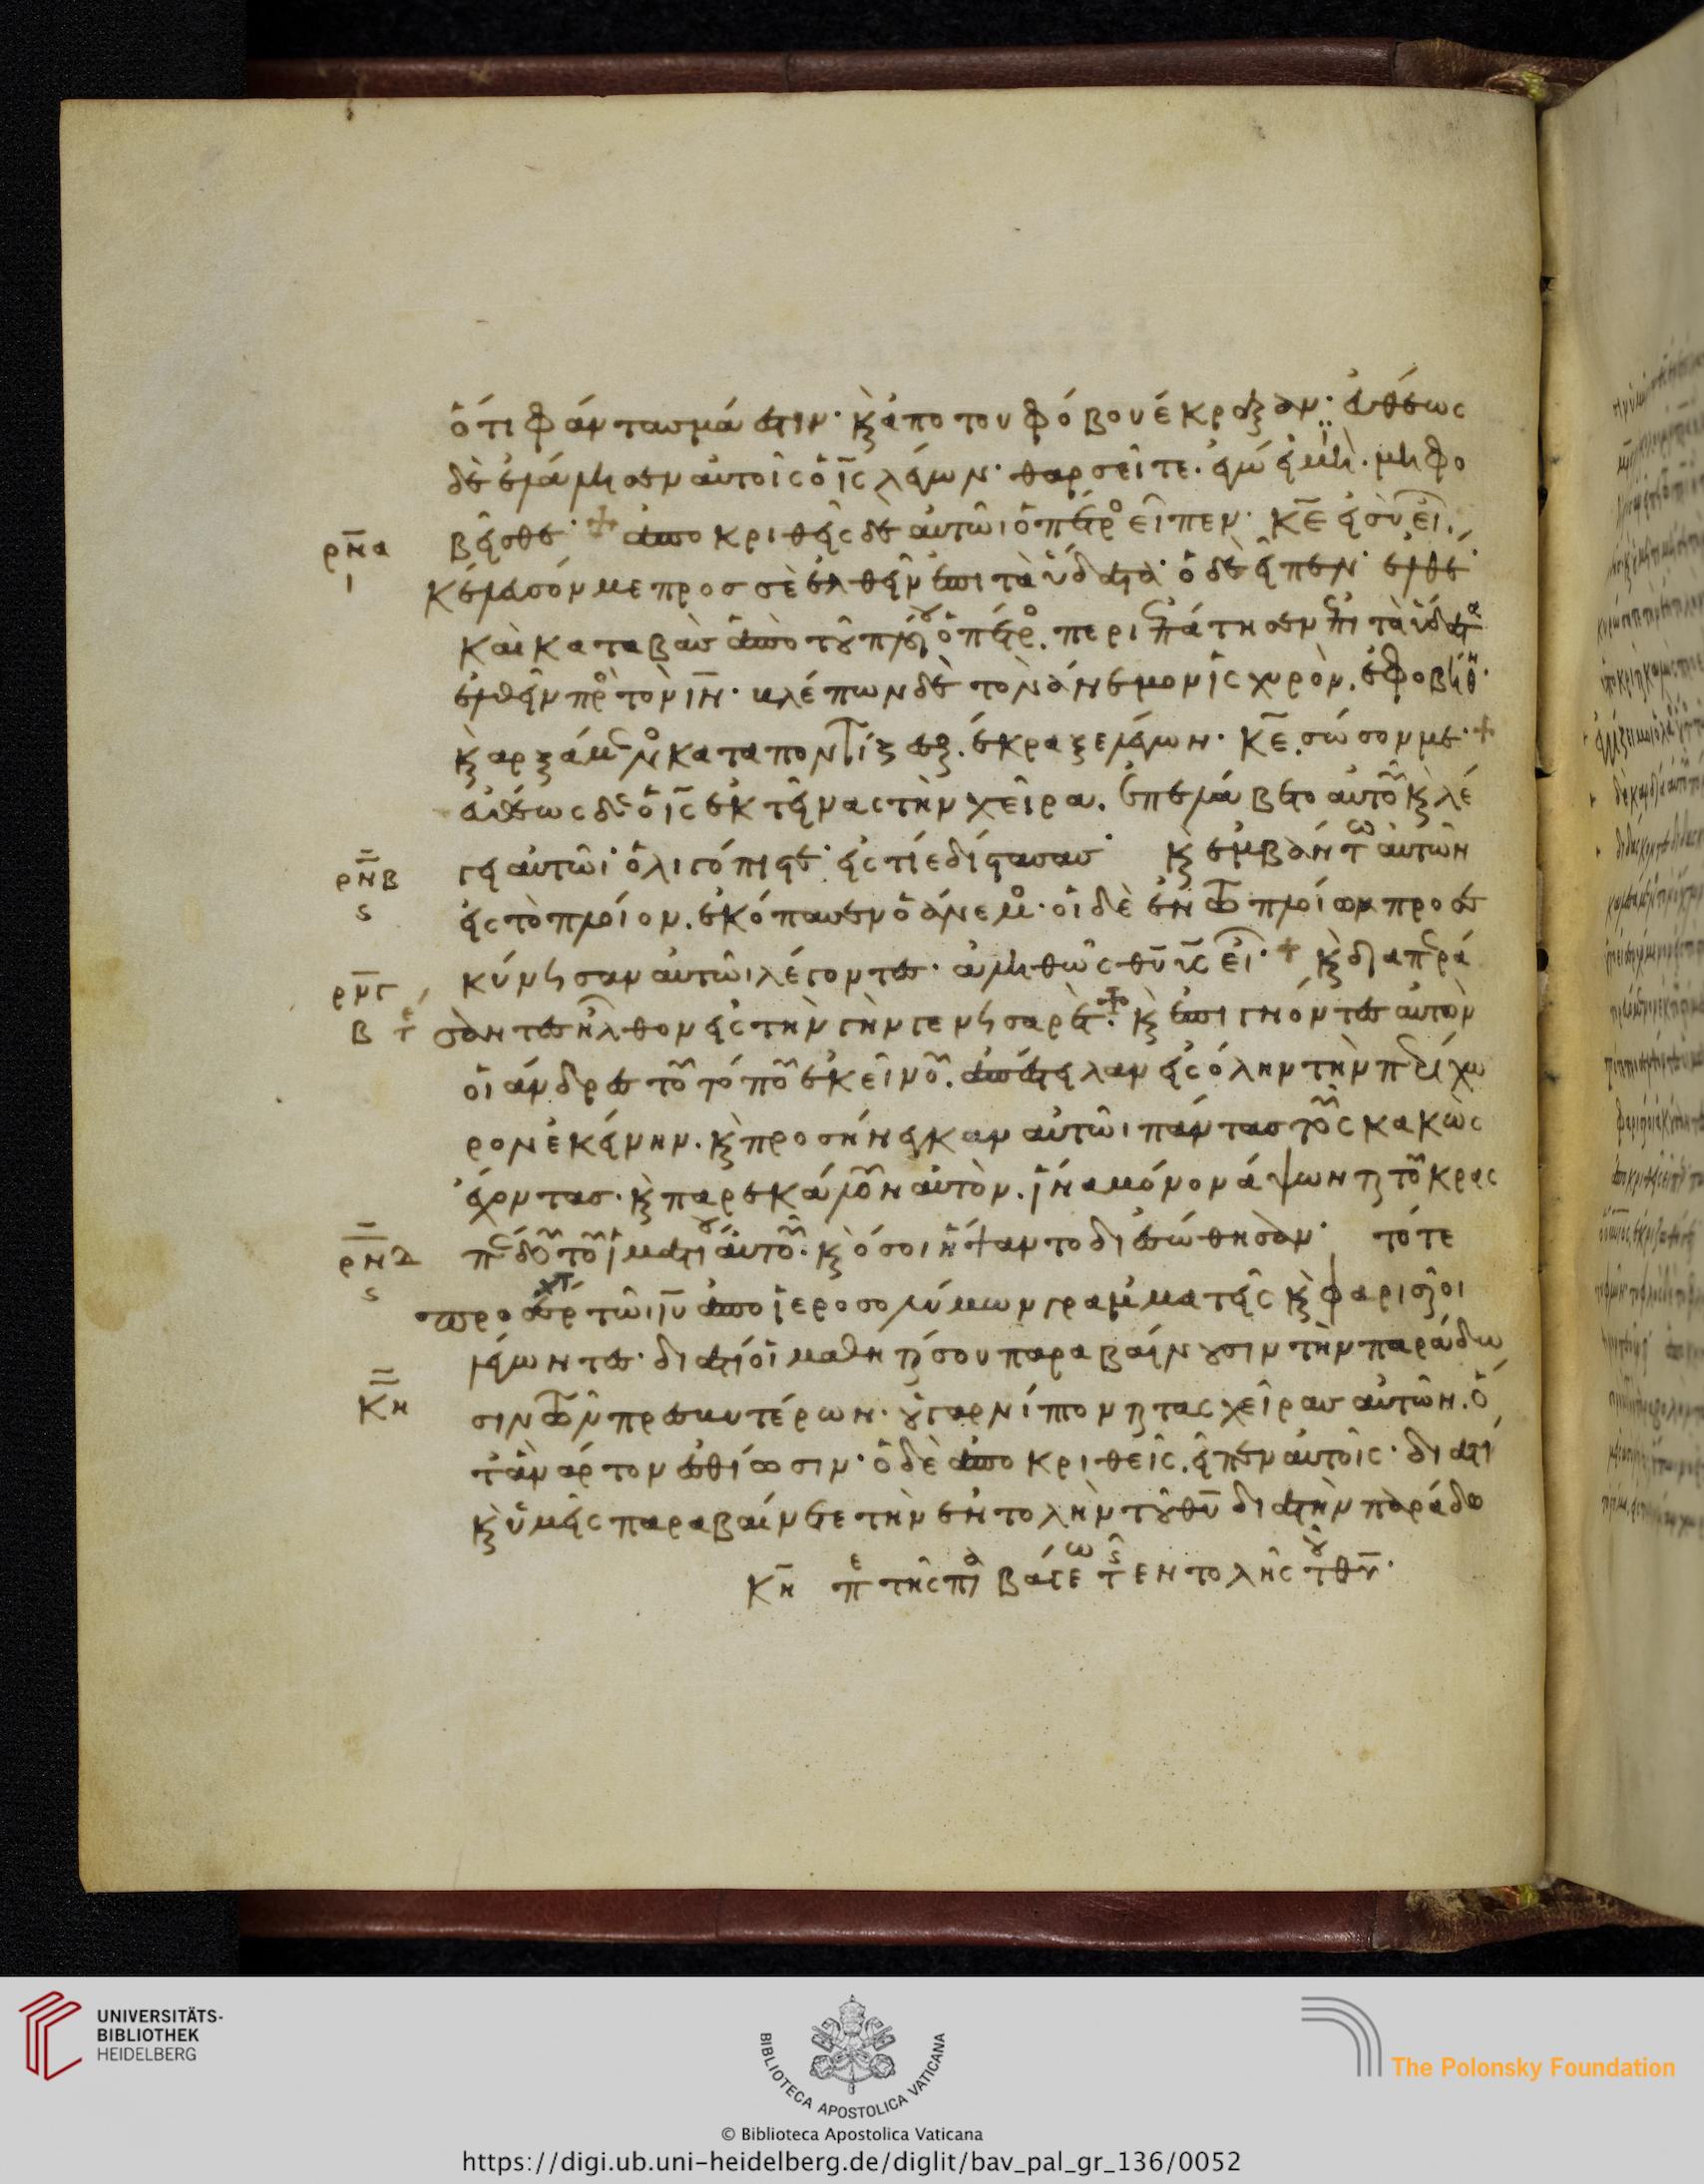 ὅτι φάντασμά ἐστιν· κ̀ ἀπο του φόβου ἔκραξαν· εὐθέως
δὲ ἐλάλησεν αὐτοῖς ὁ ις̅ λέγων· θαρσεῖτε. ἐγώ εἰμὶ. μὴ φο
ρμ̅α βεῖσθε· + ἀποκριθεὶς δὲ αὐτῶι ὁ πέτρο εἶπεν· κε̅ εἰ σὺ εἶ.
ι κέλευσόν με προσ σὲ ἐλθεῖν ἐπι τὰ ὕδατα· ὁ δὲ εἶπεν· ἐλθέ·
καὶ καταβὰσ ἀπὸ τοῦ πλοίου ὁ πέτρο. περιεπάτησεν ἐπι τὰ ὕδατα
ἐλθεῖν πρὸ τὸν ιν̅· βλέπων δὲ τὸν ἄνεμον ἰσχυρὸν. ἐφοβήθη·
κ̀ αρξάμενο καταποντίζεσθαι. ἔκραξε λέγων· κε̅. σῶσον με· +
εὐθέως δὲ ὁ ις̅ ἐκτείνας τὴν χεῖρα. ἐπελάβετο αὐτοῦ κ̀ λέ
ρμ̅β γει αὐτῶι· ὀλιγόπιστε· εἰς τί ἐδίστασασ· κ̀ ἐμβάντων αὐτῶν
ϛ εἰς τὸ πλοίον. ἐκόπασεν ὁ ἄνεμο· οἱ δὲ ἐν τῶ πλοίω προσε
ρμ̅γ κύνησαν αὐτῶι λέγοντεσ· ἀληθῶς θυ̅ υς̅ εἶ· + κ̀ διαπερά
β σαντεσ ἦλθον εἰς τὴν γῆν γενησαρέτ· + κ̀ ἐπιγνόντεσ αὐτὸν
οἱ ἄνδρεσ τοῦ τόπου ἐκείνου. ἀπέστειλαν εἰς ὅλην τὴν περίχω
ρον ἐκείνην. κ̀ προσήνεγκαν αὐτῶι πάντασ τοὺς κακῶς
ἔχοντασ. κ̀ παρεκάλουν αὐτὸν. ἵνα μόνον ἅψωνται τοῦ κρασ
ρμ̅δ πέδου τοῦ ἱματίου αὐτοῦ. κ̀ ὅσοι ἥψαντο διεσώθησαν· τότε
ϛ προσέρχονται τῶ ιυ̅ ἀπο ἱεροσολύμων γραμματεῖς κ̀ φαρισαῖοι
λέγωντεσ· διατί οἱ μαθηταί σου παραβαίνουσιν τὴν παράδω
κη σιν τῶν πρεσβυτέρων· οὐ γαρ νίπτονται τας χεῖρασ αὐτῶν. ὅ
τὰν ἄρτον ἐσθίωσιν· ὁ δὲ ἀποκριθεὶς. εἶπεν αὐτοῖς· διατί
κ̀ ὑμεῖς παραβαίνετε τὴν ἐντολὴν τοῦ θυ̅ διατὴν παράδω
κη̅ πε τῆς παραβάσεω τῆς ἐντολῆς τοῦ θυ̅·
UNIVERSITÄTS-
BIBLIOTHEK
HEIDELBERG
BIBLIOTECA APOSTOLICA VATICANA
The Polonsky Foundation
© Biblioteca Apostolica Vaticana
https://digi.ub.uni-heidelberg.de/diglit/bav_pal_gr_136/0052